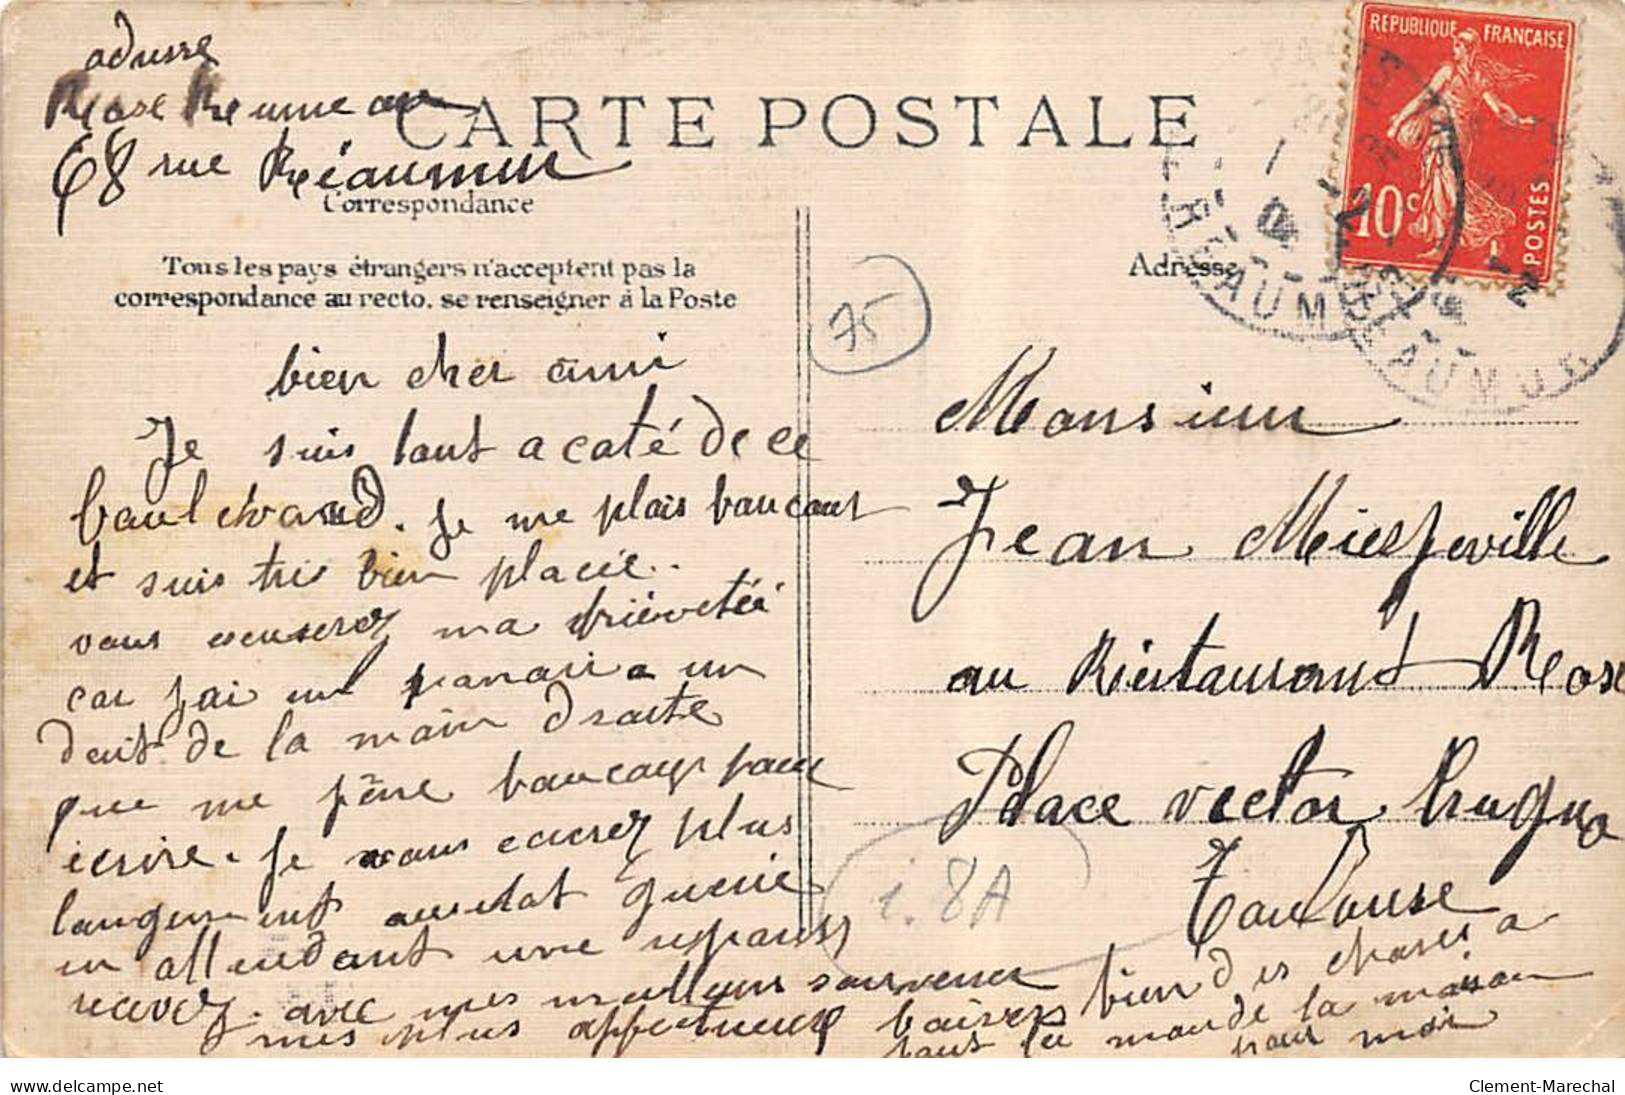 adresse
Rose
68 rue Réaumur
CARTE POSTALE
Correspondance
Tous les pays étrangers n'acceptent pas la
correspondance au recto. se renseigner à la Poste
Adresse
REPUBLIQUE FRANÇAISE
10c
POSTES
75
bien cher ami
Je suis tout a coté de ce
boulevard. Je me plais baucout
et suis tres bien placie..
vous excuserez ma briévetéé
car jai un panari a un
doit de la main droite
que me féne baucoup pour
ecrire. Je vous ecrirez plus
longument ausitot guerie
en attendant une repons
recevez. avec mes meilleurs souvenir
mes plus affectueux baisers bien des choses a
tout le monde de la maison
pour moi
Monsieur
Jean Miegeville
au Réstaurant Rose
Place vector hugno
Toulouse
i. 8A
delcampe.net
Clement-Marechal